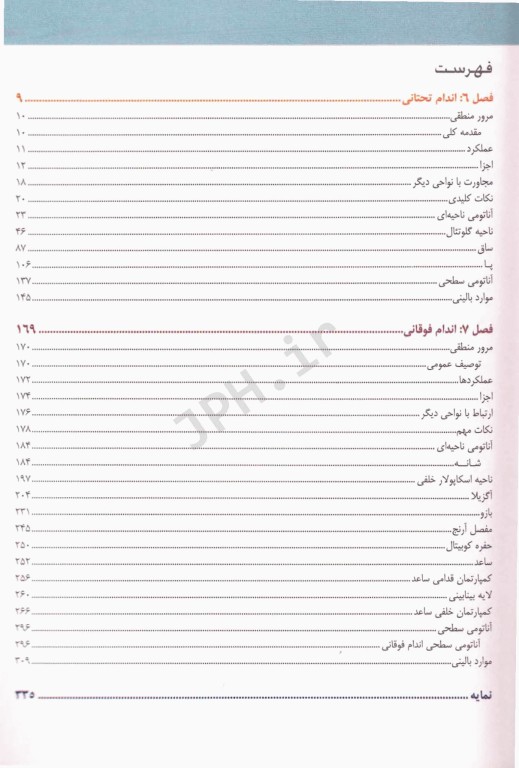 فهرست
فصل ۶: اندام تحتانی ۹
مرور منطقی ۱۰
مقدمه کلی ۱۰
عملکرد ۱۱
اجزا ۱۲
مجاورت با نواحی دیگر ۱۸
نکات کلیدی ۲۰
آناتومی ناحیه‌ای ۲۳
ناحیه گلوتئال ۴۶
ساق ۸۷
پا ۱۰۶
آناتومی سطحی ۱۳۷
موارد بالینی ۱۴۵
فصل ۷: اندام فوقانی ۱۶۹
مرور منطقی ۱۷۰
توصیف عمومی ۱۷۰
عملکردها ۱۷۲
اجزا ۱۷۴
ارتباط با نواحی دیگر ۱۷۶
نکات مهم ۱۷۸
آناتومی ناحیه‌ای ۱۸۴
شانه ۱۸۴
ناحیه اسکاپولار خلفی ۱۹۷
آگزیلا ۲۰۴
بازو ۲۳۱
مفصل آرنج ۲۴۵
حفره کوبیتال ۲۵۰
ساعد ۲۵۲
کمپارتمان قدامی ساعد ۲۵۶
لایه بینابینی ۲۶۰
کمپارتمان خلفی ساعد ۲۶۶
آناتومی سطحی ۲۹۶
آناتومی سطحی اندام فوقانی ۲۹۶
موارد بالینی ۳۰۹
نمایه ۳۳۵
JPH.ir